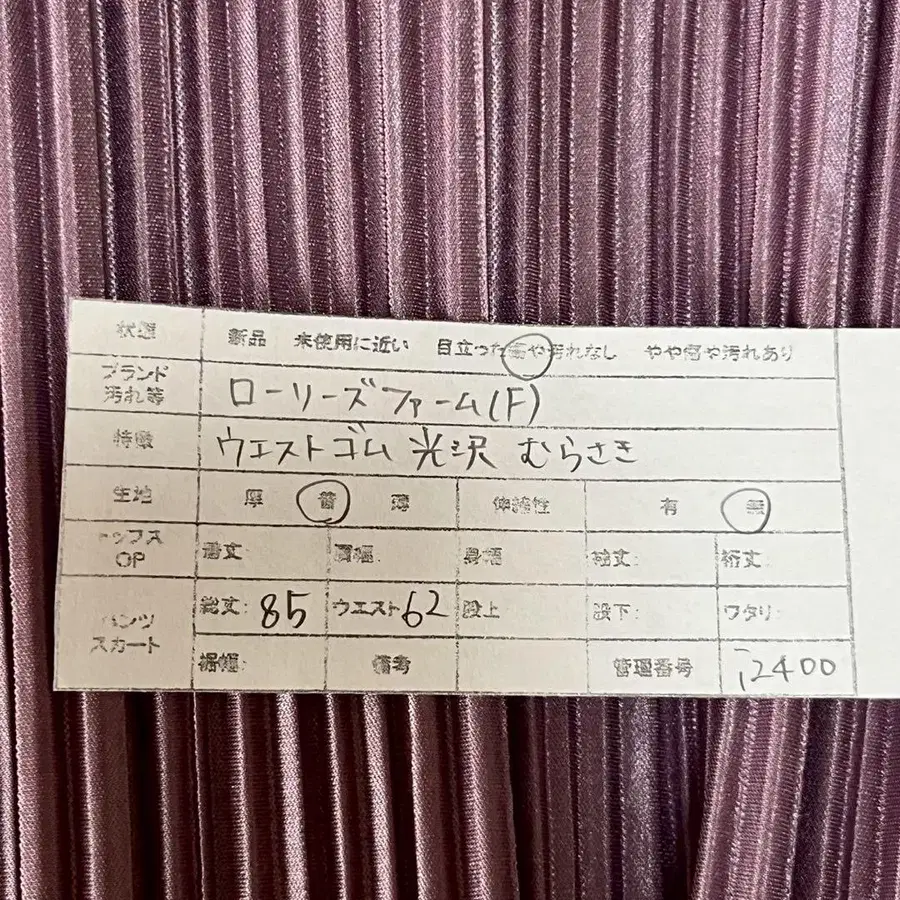 状態 新品 未使用に近い 目立った傷や汚れなし やや傷や汚れあり
ブランド
汚れ等 ローリーズファーム(F)
特徴 ウエストゴム 光沢 むらさき
生地 厚 普 薄 伸縮性 有 無
トップス
OP 着丈: 肩幅: 身幅 袖丈: 裄丈:
パンツ
スカート 総丈: 85 ウエスト62 股上 股下: ワタリ:
裾幅: 備考 管理番号 i2400